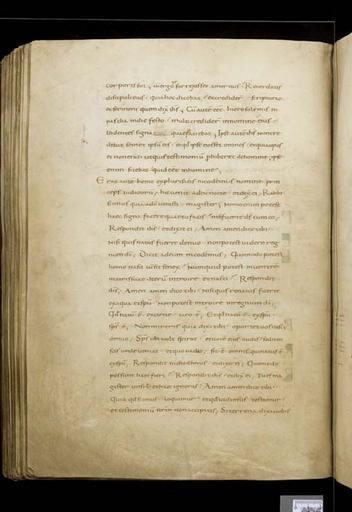 corporis sui, cu ergo resurrexisset a mortuis Recordati
discipuli eius quia hoc dicebat et crediderunt scripturae
et sermoni quem dixit ihs, Cu aute eet hierosolimis in
pascha in die festo multi crediderunt in nomine eius
videntes signa quae faciebat, Ipse aute ihs non cre
debat semet ipsu eis eo qd ipse nosset omnes et quia opus
ei non erat ut quis testimoniu phiberet de homine, ipse
enim sciebat quid eet in homine,
Erat aute homo ex pharisaeis nicodemus nomine prin
ceps iudaeoru, hic venit ad eu nocte et dixit ei, Rabbi
scimus quia a do venisti magister, nemo enim potest
haec signa facere quae tu facis nisi fuerit ds cum eo,
Respondit ihs et dixit ei, Amen amen dico tibi
nisi quis natus fuerit denuo non potest videre reg
num di, Dicit ad eum nicodemus, Quomodo potest
homo nasci cu sit senex numquid potest in uentre
matris suae iterato introire et nasci Respondit
ihs, Amen amen dico tibi nisi quis renatus fuerit
ex aqua et spu non potest introire in regnum di,
Qd natu e ex carne caro e, Et qd natu e ex spu
sps e, Non mireris quia dixi tibi oportet vos nasci
denuo, Sps ubi vult spirat et uocem eius audis sed non
scis unde ueniat et quo uadat, sic e omnis qui natus e
ex spu, Respondit nicodemus et dixit ei, Quomodo
possunt haec fieri Respondit ihs et dixit ei, Tu es ma
gister israhel et haec ignoras Amen amen dico tibi
Quia qd scimus loquimur et qd uidimus testamur
et testimoniu nrm non accipitis, Si terrena dixi uobis